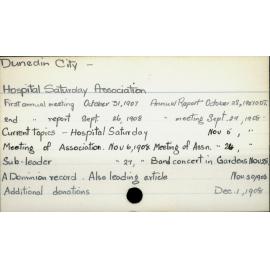 Dunedin City -
Hospital Saturday Association
First annual meeting October 31, 1907 Annual Report October 28, 1907 O.D.T.
2nd " report Sept. 26, 1908 " meeting Sept. 29, 1908
Current topics - Hospital Saturday Nov 5, "
Meeting of Association. Nov 6, 1908 Meeting of Assn. " 24, "
Sub-leader " 27, " Band concert in Gardens Nov 28
A Dominion record. Also leading article Nov 30, 1908
Additional donations Dec. 1, 1908